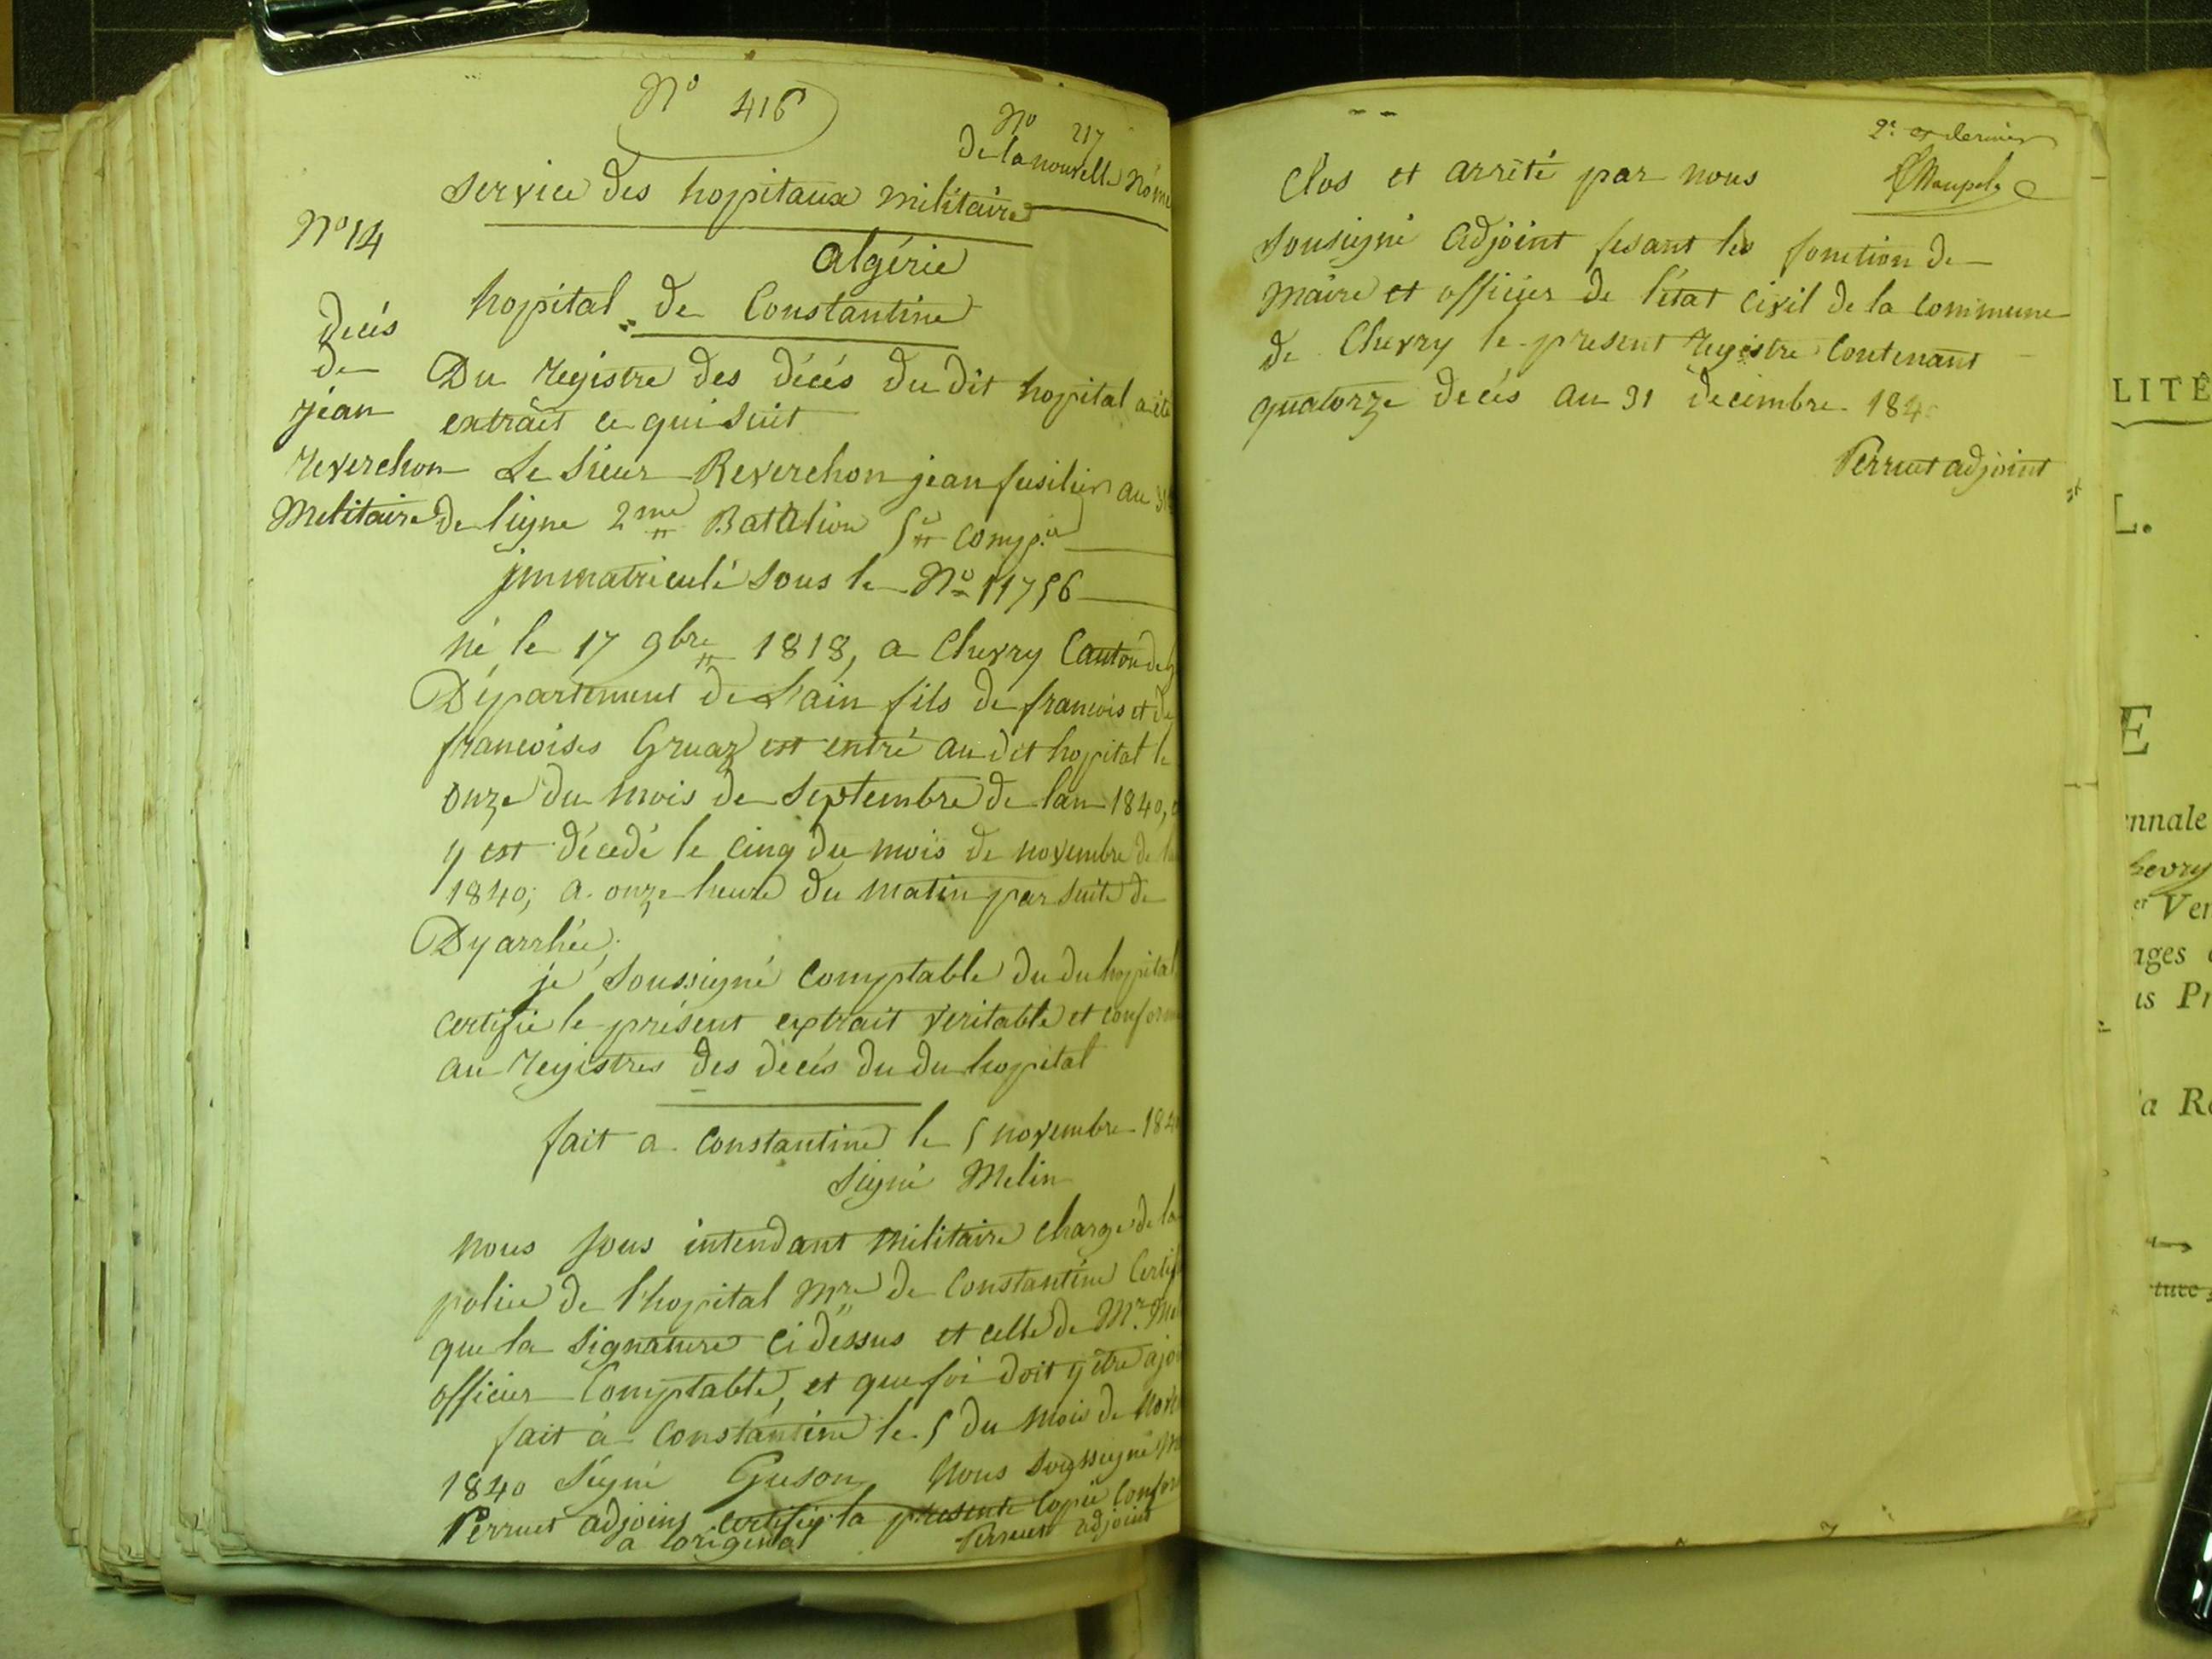 No 416
No 217
de la nouvelle
service des hopitaux militaire
No 14
algérie
hopital de Constantine
decés
de
jean
reverchon
Melitaire
Du registre des décés du dit hopital a été
extrait ce qui suit
Le sieur Reverchon jean fusilier au
de ligne 2me Batalion 5e compie
jmmatriculé sous le No 11756
né le 17 9bre 1818, a Chevry Canton de
Département de L'ain fils de francois et de
francoises Gruaz est entré au dit hopital le
onze du mois de Septembre de lan 1840,
y est décedé le cinq du mois de novembre de
1840; a onze heure du matin par suite de
Dyarrhée;
je soussigné comptable du du hopital
certifie le présent extrait veritable et conforme
au registres des décés du du hopital
fait a Constantine le 5 novembre 1840
signé Melin
nous sous intendant militaire charge de la
police de l'hopital Mre de Constantine
que la signature ci dessus et celle de Mr.
officier Comptable, et que foi doit y être
fait à Constantine le 5 du mois de
1840 signé Guson nous
Perruet adjoint certifie la presente copie
a loriginal Perruet adjoint
2e et dernier
Clos et arrêté par nous
sousigné adjoint fesant les fonction de
maire et officier de l'état civil de la commune
de Chevry le present registre contenant
quatorze decés au 31 decembre 184
Perruet adjoint
LITÉ
L.
E
nnale
hevry
Ver
ages
is Pr
a Re